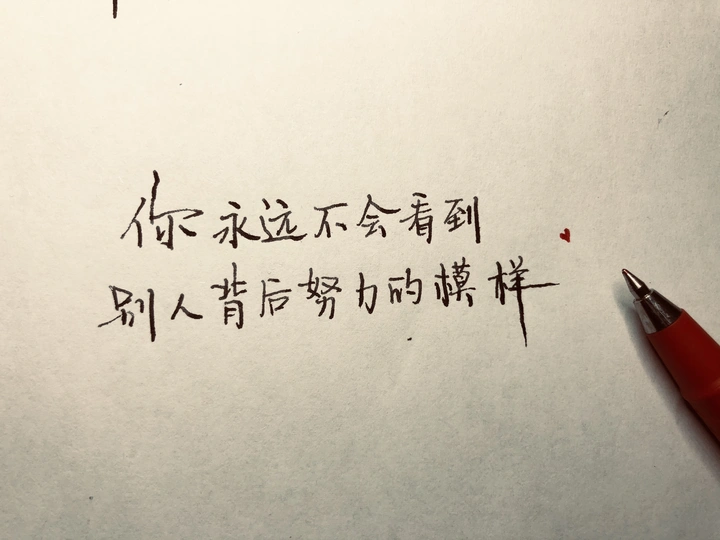 你永远不会看到
别人背后努力的模样